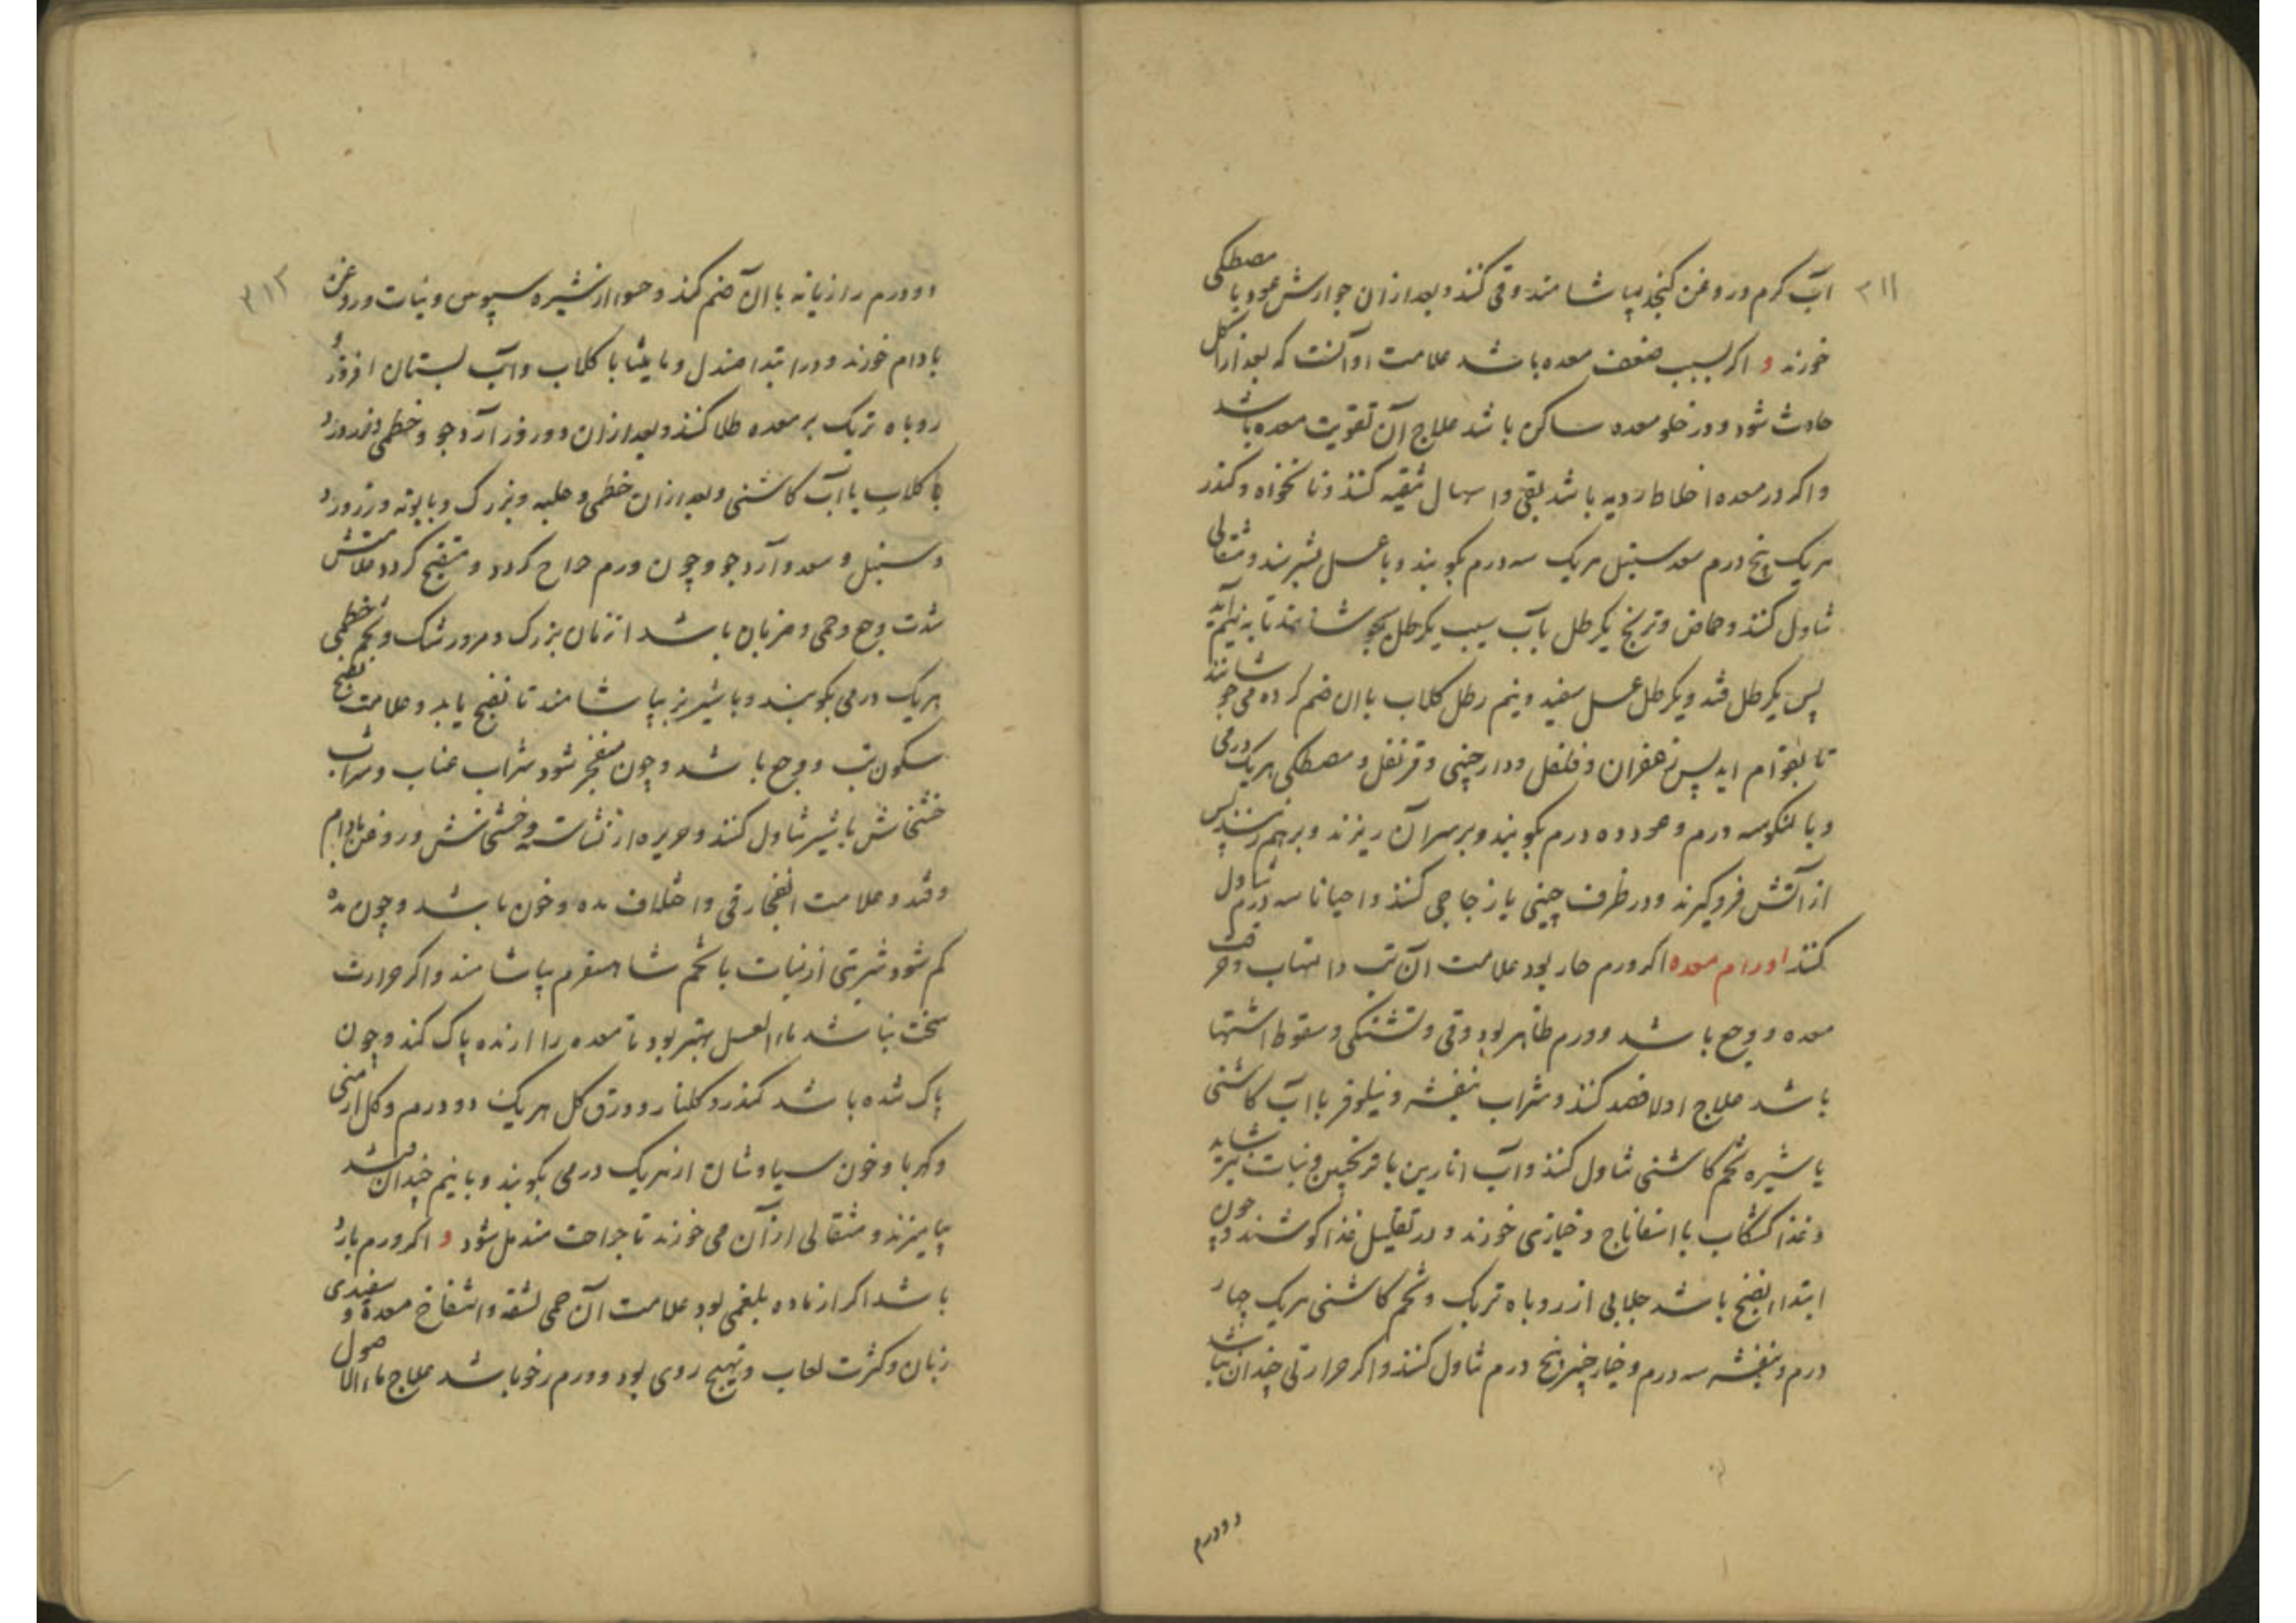 ۳۱۱
آب کرم و روغن کنجد بیاشامند و قی کنند و بعد ازان جوارش عود یا مصطکی
خورند و اکر بسبب ضعف معده باشد علامت او آنست که بعد از اکل
حادث شود و در خلو معده ساکن باشد علاج آن تقویت معده باشد
و اکر در معده اخلاط ردیه باشد بقی و اسهال تنقیه کنند و نانخواه و کندر
هریک پنج درم سعد سنبل هریک سه درم بکوبند و با عسل بسریشند و مثقالی
تناول کنند و حماض و ترنج یکرطل با آب سیب یکرطل بجوشانند تا به نیم آید
پس یکرطل قند و یکرطل عسل سفید و نیم رطل کلاب با ان ضم کرده می جوشانند
تا بقوام اید پس زعفران و فلفل و دارچینی و قرنفل و مصطکی هریک درمی
و بالنکو سه درم و عود ده درم بکوبند و بر سر آن ریزند و برهم زنند پس
از آتش فرو کیرند و در ظرف چینی یا زجاجی کنند و احیانا سه درم تناول
کنند اورام معده اکر ورم حار بود علامت آن تب و التهاب و حرقت
معده و وجع باشد و ورم ظاهر بود و قی و تشنکی و سقوط اشتها
باشد علاج اولا فصد کنند و شراب بنفشه و نیلوفر با آب کاشنی
یا شیره تخم کاشنی تناول کنند و آب انارین با ترنجبین و نبات نیز شاید
و غذا کشکاب با اسفاناج و خبازی خورند و در تقلیل غذا کوشند و چون
ابتداء نضج باشد جلابی از روباه تربک و تخم کاشنی هریک چهار
درم و بنفشه سه درم و خیارچنبر پنج درم تناول کنند و اکر حرارتی چندان نباشد
دو درم
۳۱۲
دو درم رازیانه با ان ضم کنند و حسوا از شیره سپوس و نبات و روغن
بادام خورند و در ابتدا صندل و مامیثا با کلاب و آب بستان افروز و
روباه تربک بر معده طلا کنند و بعد ازان دو روز آرد جو و خطمی و زرورد
با کلاب یا آب کاشنی و بعد ازان خطمی و حلبه و بزرک و بابونه و زرورد
و سنبل و سعد و آرد جو و چون ورم خراج کردد و متقیح کردد علامتش
شدت وجع و حمی و ضربان باشد ازمان بزرک و مرور شک و تخم خطمی
هریک درمی بکوبند و با شیر بز بیاشامند تا نضج یابد و علامت نضج
سکون تب و وجع باشد و چون منفجر شود شراب عناب و شراب
خشخاش با شیر تناول کنند و حریره از نشاسته و خشخاش و روغن بادام
و قند و علامت انفجار قی و اختلاف مده و خون باشد و چون مده
کم شود شربتی از نبات با تخم شاهسفرم بیاشامند و اکر حرارت
سخت نباشد ماء العسل بهتر بود تا معده را از مده پاک کند و چون
پاک شده باشد کندر و کلنار و ورق کل هریک دو درم و کل ارمنی
و کهربا و خون سیاوشان از هریک درمی بکوبند و با نیم چندان قند
بیامیزند و مثقالی از آن می خورند تا جراحت مندمل شود و اکر ورم بارد
باشد اکر از ماده بلغمی بود علامت آن حمی لثقه و انتفاخ معده و سفیدی
زبان و کثرت لعاب و تهیج روی بود و ورم رخو باشد علاج ماء الاصول